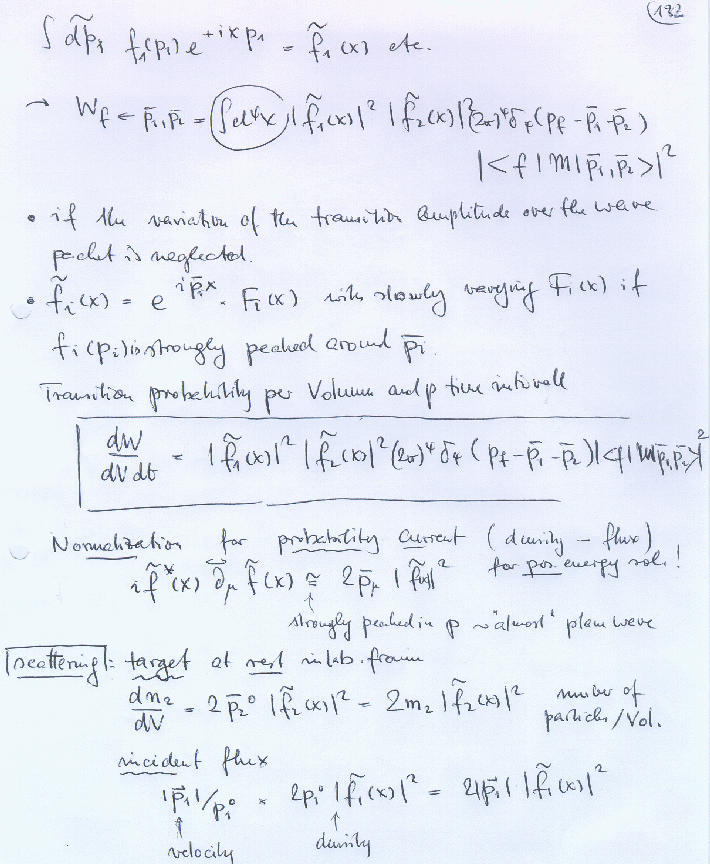 132
∫ d̃p₁ f₁(p₁) e^{+ixp₁} = f̃₁(x) etc.
→ W_{f ← p̄₁,p̄₂} = ∫d⁴x |f̃₁(x)|² |f̃₂(x)|² (2π)⁴ δ₄(p_f - p̄₁ - p̄₂)
|<f|M|p̄₁,p̄₂>|²
• if the variation of the transition amplitude over the wave
packet is neglected.
• f̃ᵢ(x) = e^{ip̄ᵢx} · Fᵢ(x) with slowly varying Fᵢ(x) if
fᵢ(pᵢ) is strongly peaked around p̄ᵢ.
Transition probability per Volume and p time intervall
dW/dVdt = |f̃₁(x)|² |f̃₂(x)|² (2π)⁴ δ₄(p_f - p̄₁ - p̄₂) |<f|M|p̄₁p̄₂>|²
Normalization for probability current (density - flux)
for pos. energy sol.!
i f̃*(x) ∂⃡_μ f̃(x) ≅ 2p̄_μ |f̃(x)|²
strongly peaked in p ~ "almost" plane wave
scattering: target at rest in lab. frame
dn₂/dV = 2p̄₂⁰ |f̃₂(x)|² = 2m₂ |f̃₂(x)|² number of
particles/Vol.
incident flux
|p⃗₁|/p₁⁰ × 2p₁⁰ |f̃₁(x)|² = 2|p⃗₁| |f̃₁(x)|²
velocity density